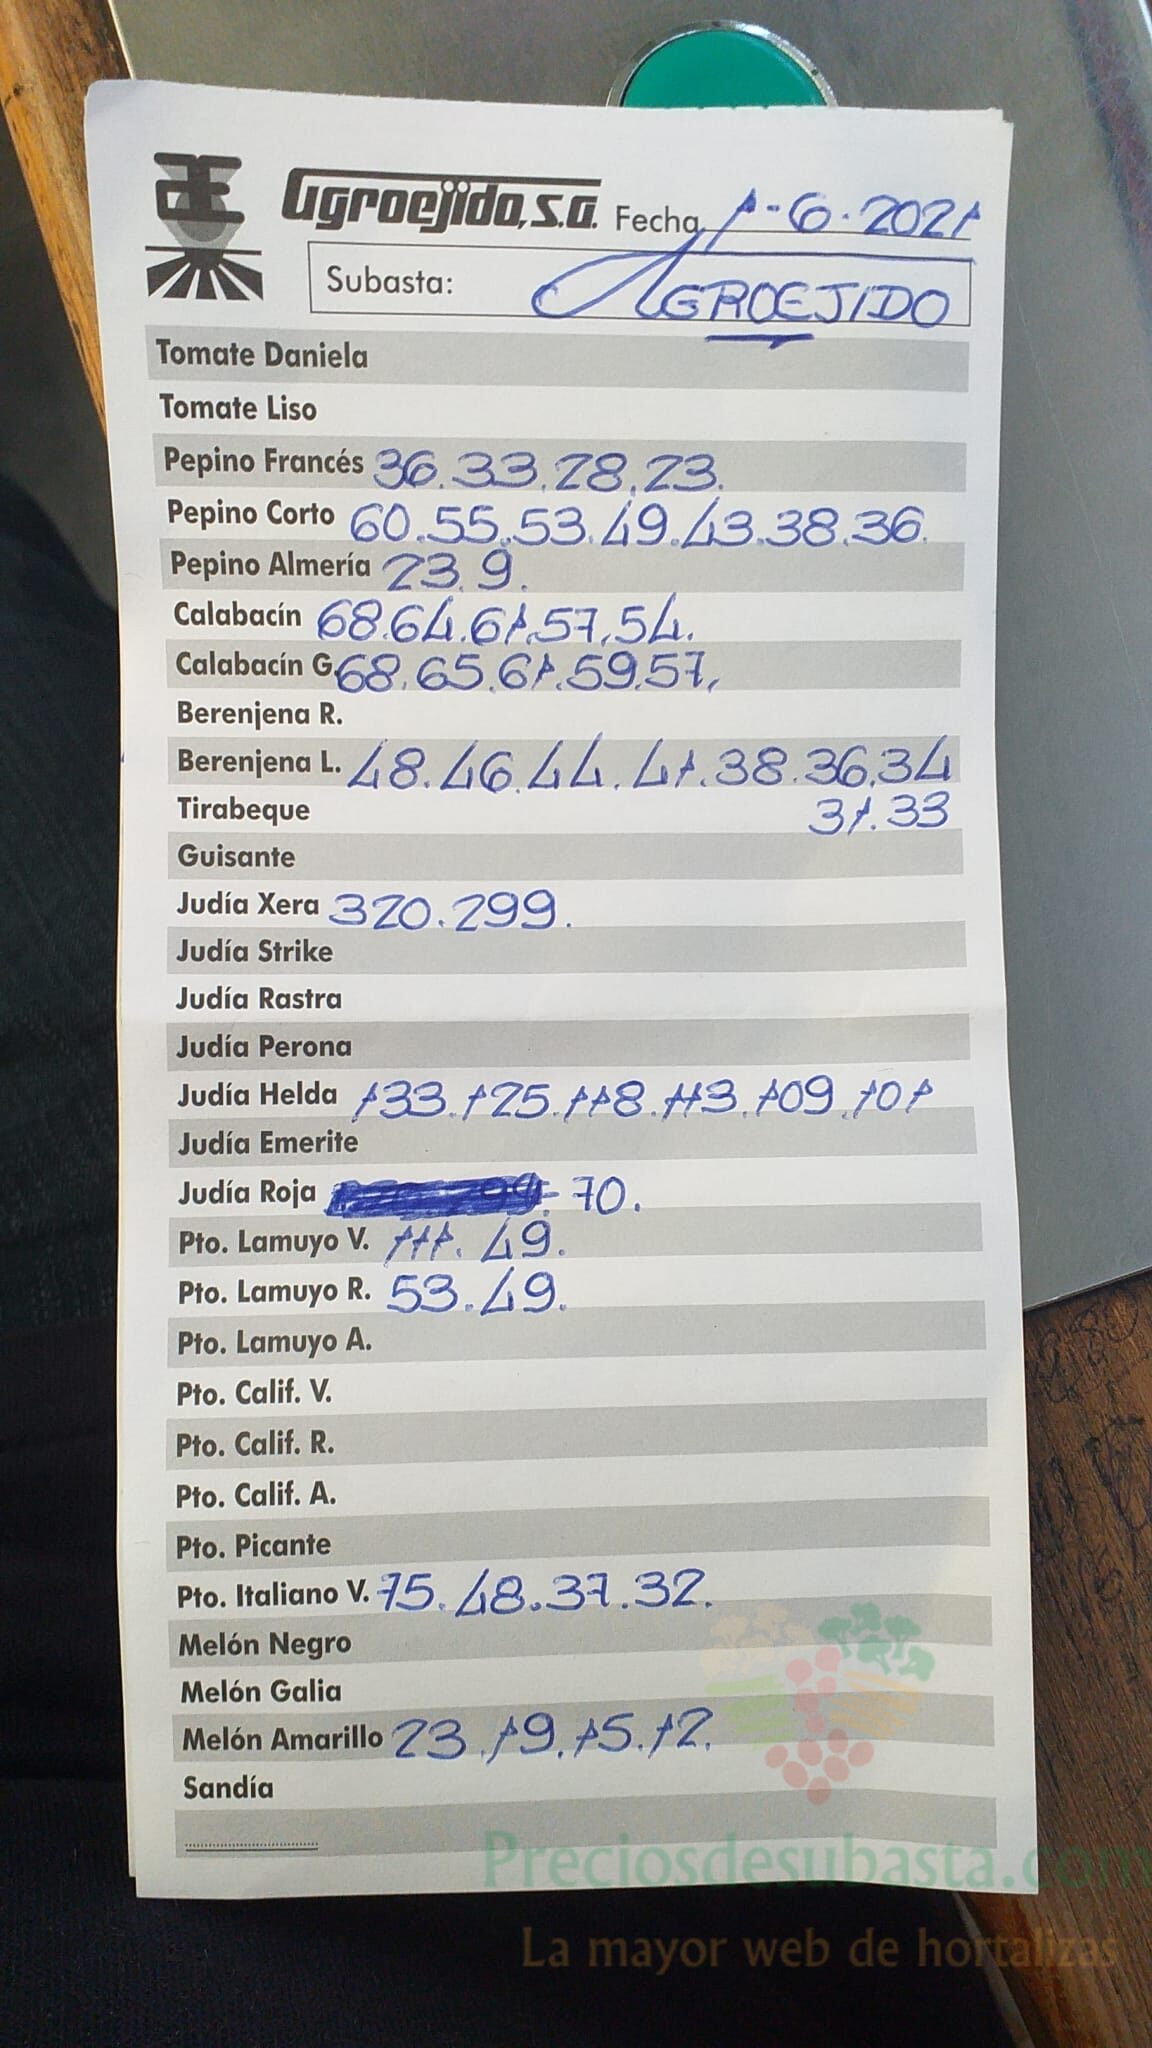 Agroejido, S.A. Fecha 1-6-2021
Subasta: AGROEJIDO
Tomate Daniela
Tomate Liso
Pepino Francés 36.33.28.23.
Pepino Corto 60.55.53.49.43.38.36.
Pepino Almería 23.9.
Calabacín 68.64.61.57.54.
Calabacín G. 68.65.61.59.57.
Berenjena R.
Berenjena L. 48.46.44.41.38.36.34
Tirabeque 31.33
Guisante
Judía Xera 320.299.
Judía Strike
Judía Rastra
Judía Perona
Judía Helda 133.125.118.113.109.101
Judía Emerite
Judía Roja 70.
Pto. Lamuyo V. 111.49.
Pto. Lamuyo R. 53.49.
Pto. Lamuyo A.
Pto. Calif. V.
Pto. Calif. R.
Pto. Calif. A.
Pto. Picante
Pto. Italiano V. 75.48.37.32.
Melón Negro
Melón Galia
Melón Amarillo 23.19.15.12.
Sandía
Preciosdesubasta.com
La mayor web de hortalizas